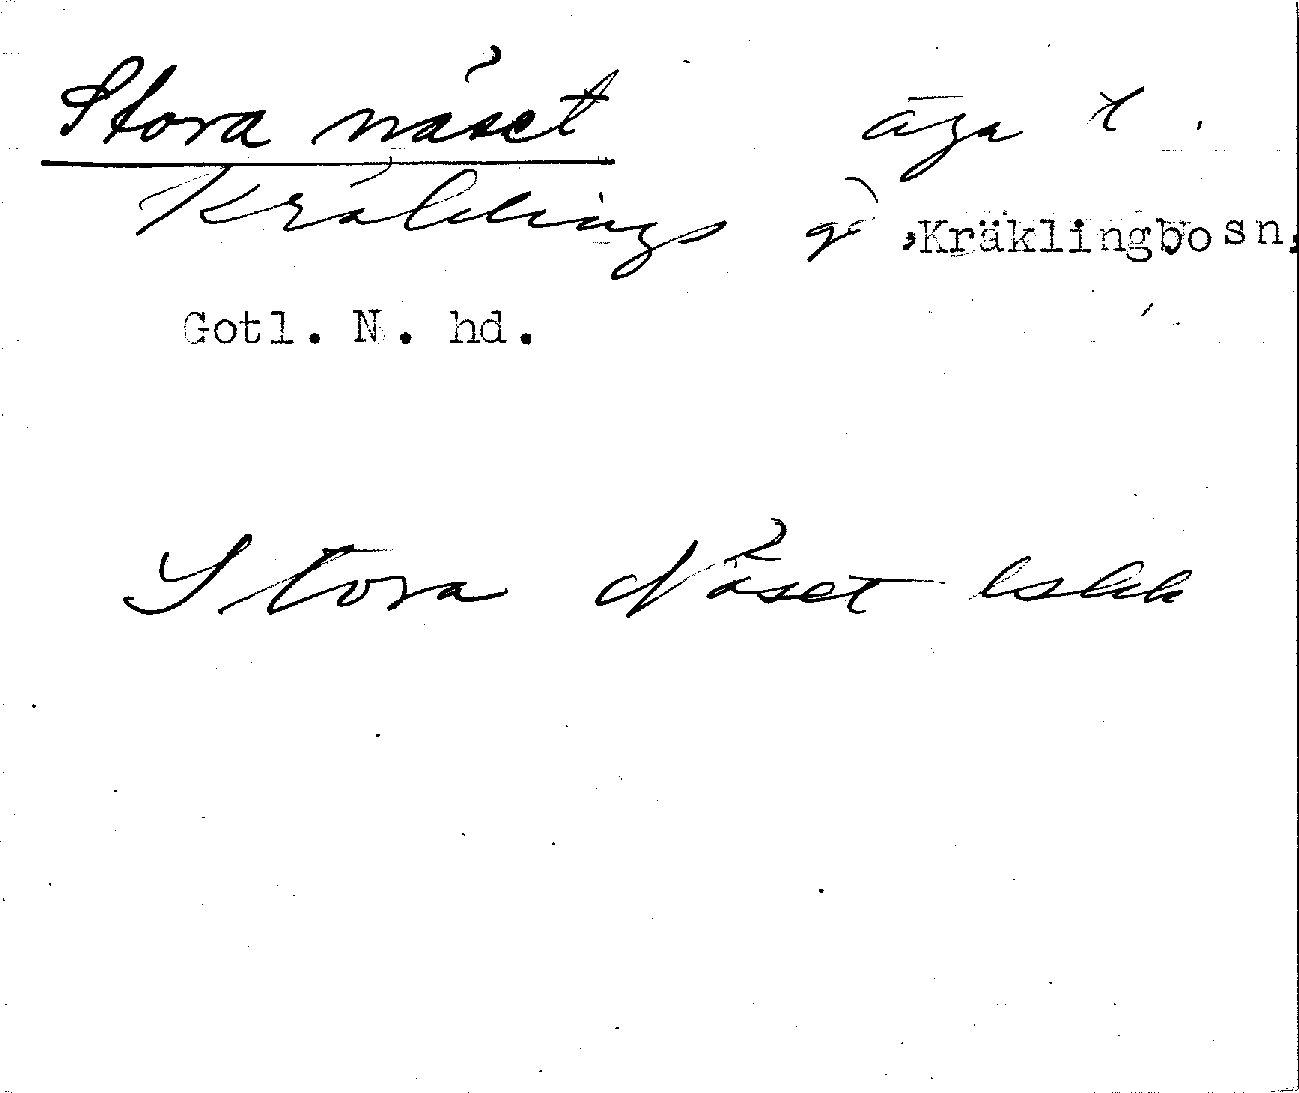 Stora näset äga t.
Kräklings gd, Kräklingbo sn,
Gotl. N. hd.
Stora Näset